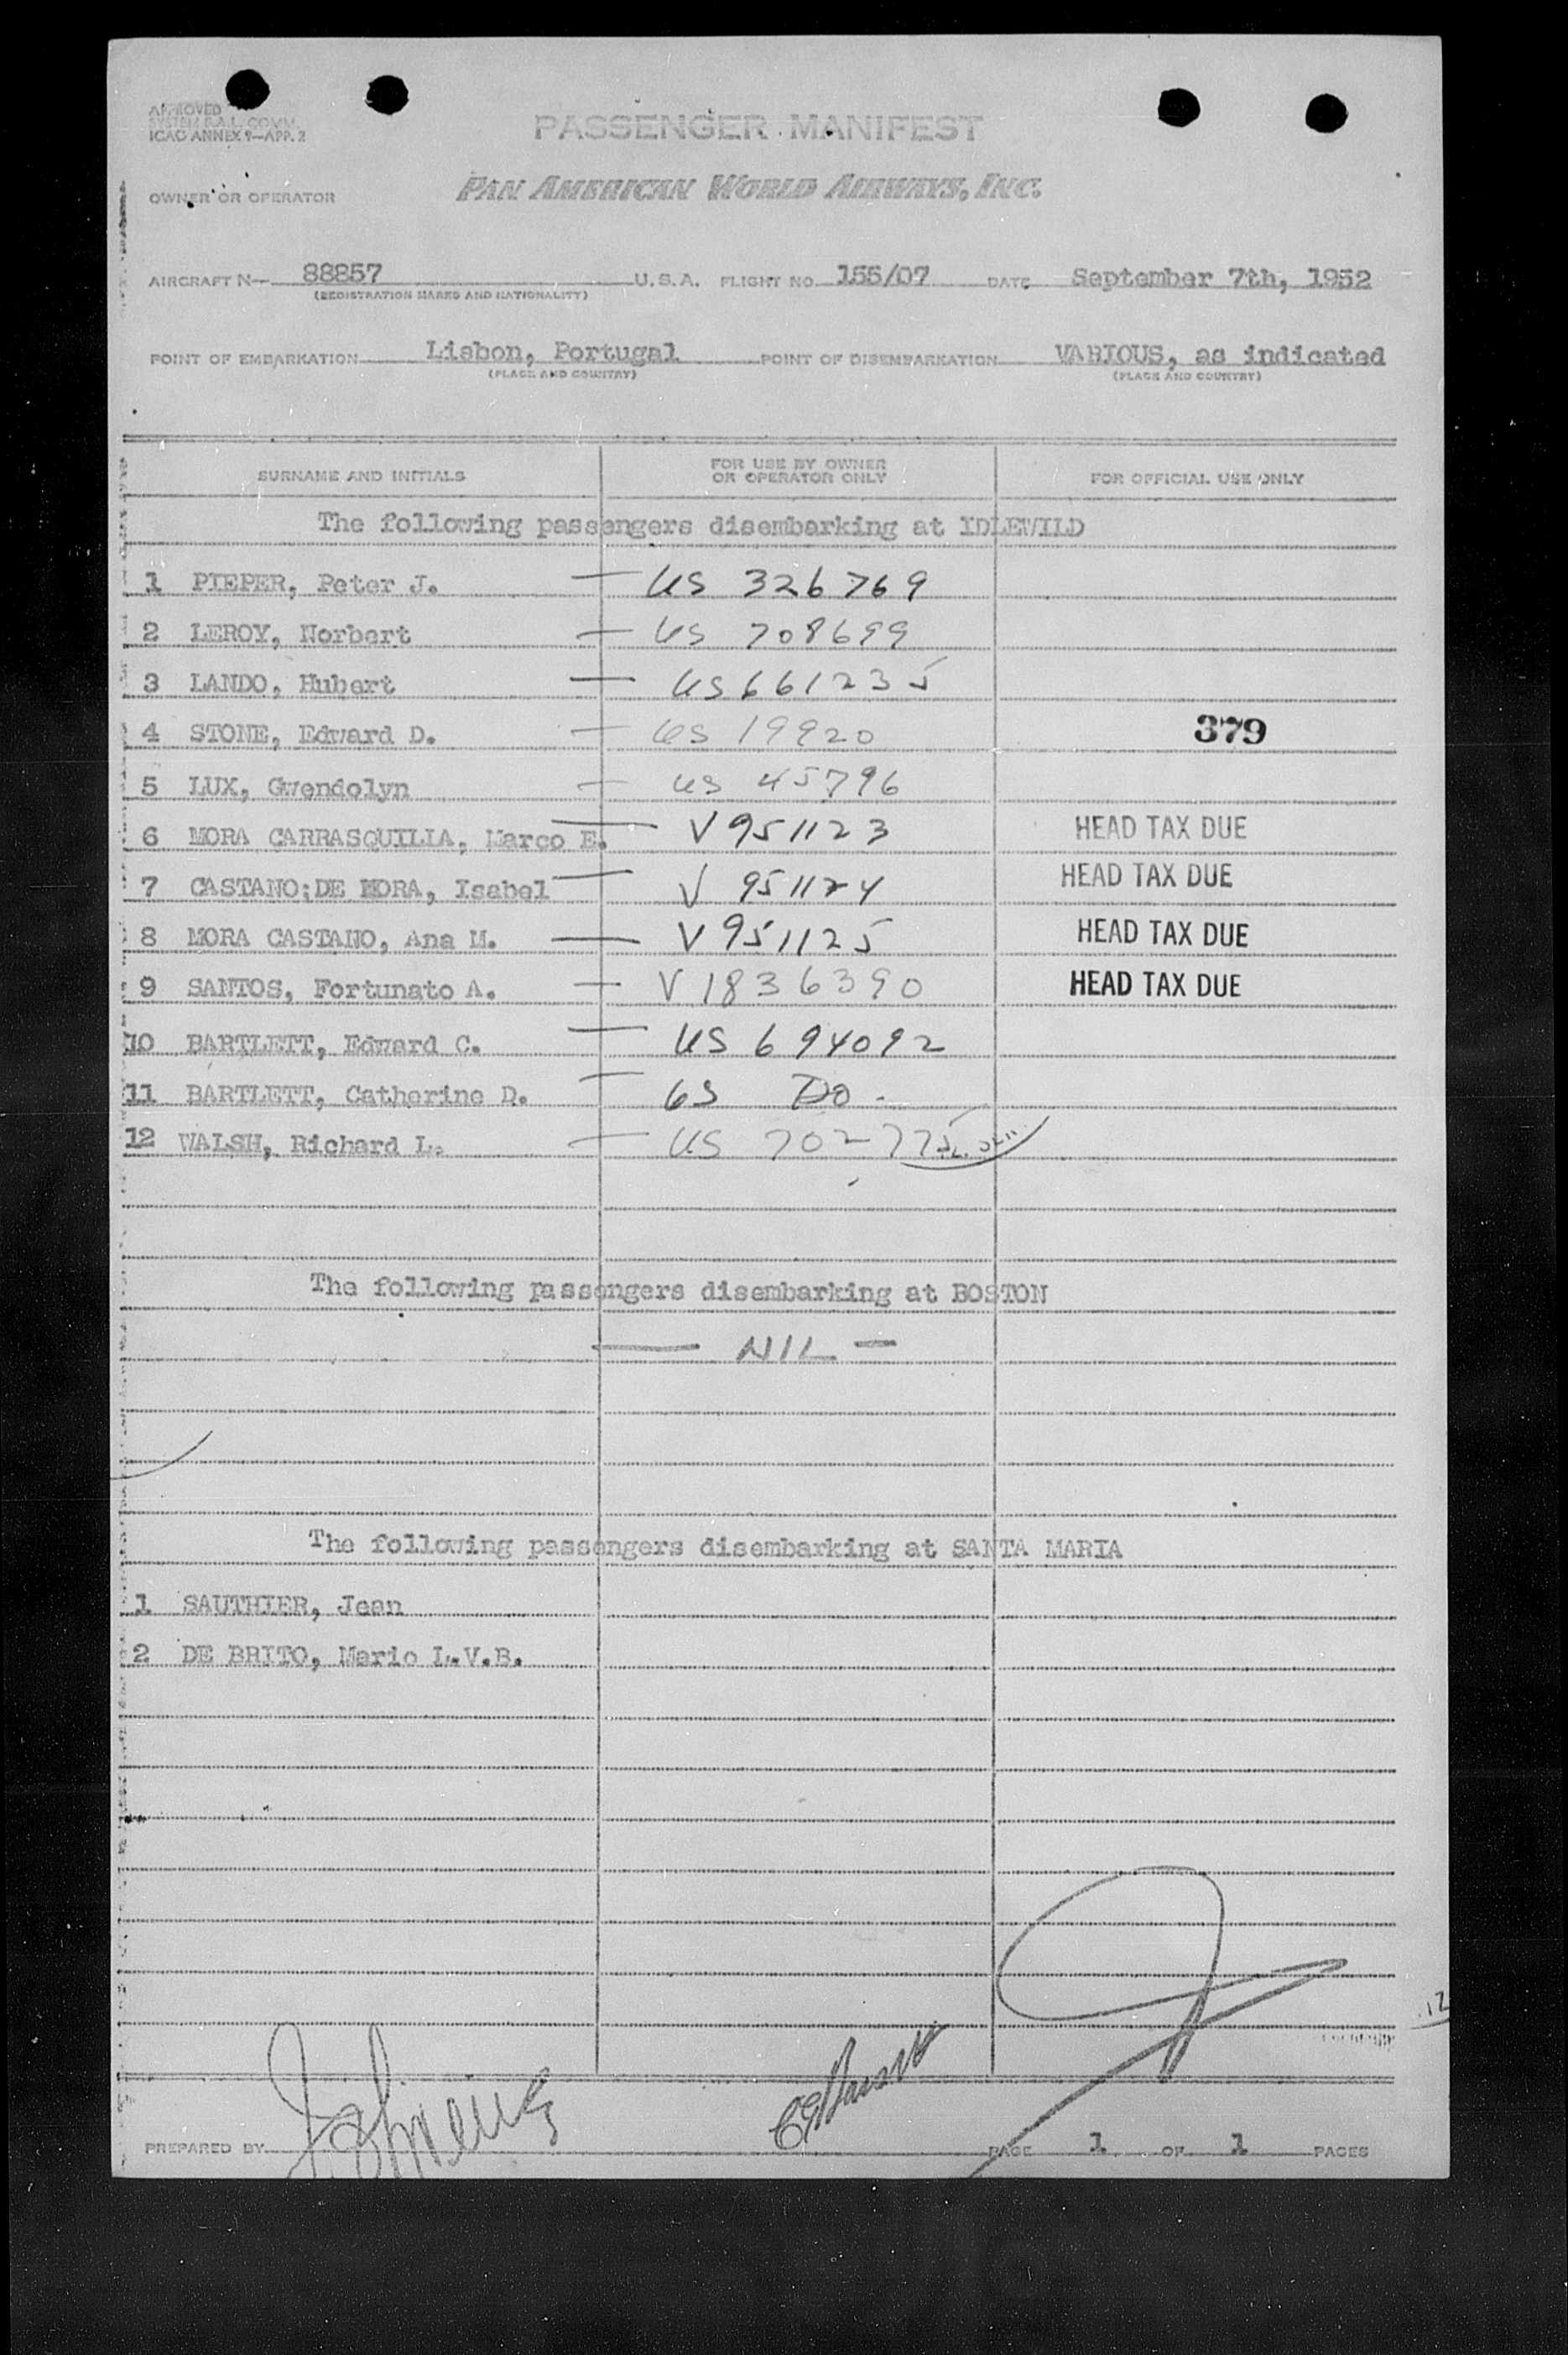 APPROVED
SYSTEM F.A.L. COMM.
ICAO ANNEX 9—APP. 2
PASSENGER MANIFEST
OWNER OR OPERATOR PAN AMERICAN WORLD AIRWAYS, INC.
AIRCRAFT N— 88857 U.S.A. FLIGHT NO 155/07 DATE September 7th, 1952
(REGISTRATION MARKS AND NATIONALITY)
POINT OF EMBARKATION Lisbon, Portugal POINT OF DISEMBARKATION VARIOUS, as indicated
(PLACE AND COUNTRY) (PLACE AND COUNTRY)
SURNAME AND INITIALS FOR USE BY OWNER OR OPERATOR ONLY FOR OFFICIAL USE ONLY
The following passengers disembarking at IDLEWILD
1 PIEPER, Peter J. — US 326769
2 LEROY, Norbert — US 708699
3 LANDO, Hubert — US 661235
4 STONE, Edward D. — US 19920 379
5 LUX, Gwendolyn — US 45796
6 MORA CARRASQUILIA, Marco E. — V 951123 HEAD TAX DUE
7 CASTANO;DE MORA, Isabel — V 951124 HEAD TAX DUE
8 MORA CASTANO, Ana M. — V 951125 HEAD TAX DUE
9 SANTOS, Fortunato A. — V 1836390 HEAD TAX DUE
10 BARTLETT, Edward C. — US 694092
11 BARTLETT, Catherine D. — US DO.
12 WALSH, Richard L. — US 702775
The following passengers disembarking at BOSTON
— NIL —
The following passengers disembarking at SANTA MARIA
1 SAUTHIER, Jean
2 DE BRITO, Mario L.V.B.
12
PREPARED BY PAGE 1 OF 1 PAGES